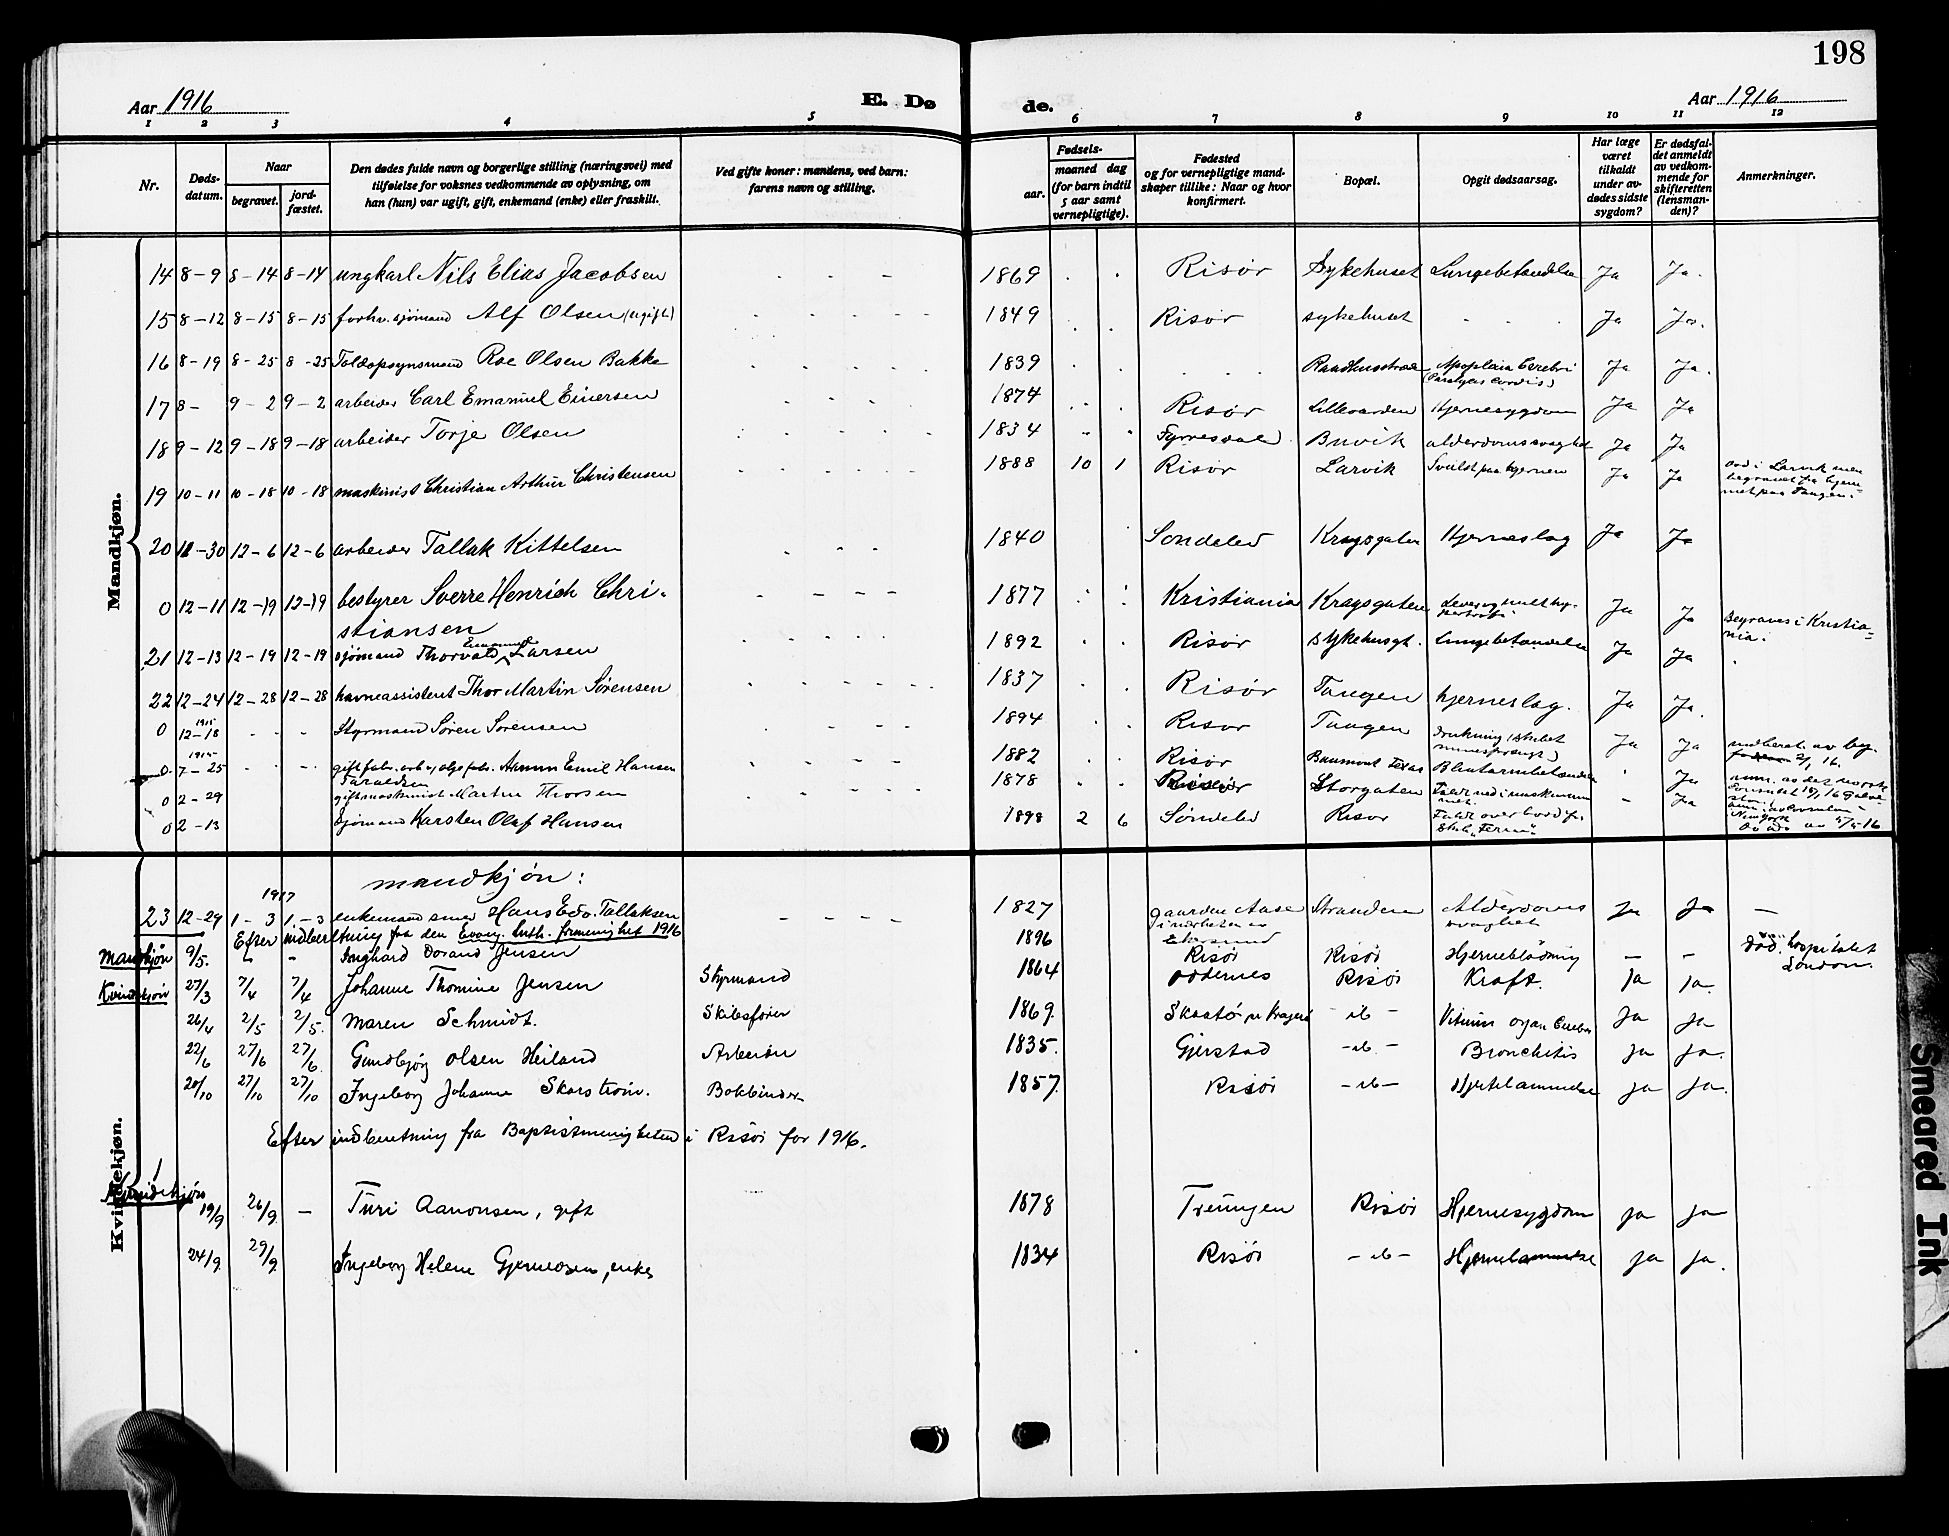 198
Aar 1916 E. Dø de. Aar 1916
1 2 3 4 5 6 7 8 9 10 11 12
Nr. Døds-datum. Naar begravet. jord-fæstet. Den dødes fulde navn og borgerlige stilling (næringsvei) med tilføielse for voksnes vedkommende av oplysning, om han (hun) var ugift, gift, enkemand (enke) eller fraskilt. Ved gifte koner: mandens, ved barn: farens navn og stilling. Fødsels- aar. maaned dag (for barn indtil 5 aar samt vernepligtige). Fødested og for vernepligtige mand-skaper tillike: Naar og hvor konfirmert. Bopæl. Opgit dødsaarsag. Har læge været tilkaldt under av-dødes sidste sygdom? Er dødsfal-det anmeldt av vedkom-mende for skifteretten (lensman-den)? Anmerkninger.
Mandkjøn.
14 8-9 8-14 8-14 ungkarl Nils Elias Jacobsen - - - 1869 . . Risør Sykehuset Lungebetændelse Ja Ja.
15 8-12 8-15 8-15 forhv. sjømand Alf Olsen (ugift) - - - - 1849 . . Risør sykehuset - - - Ja Ja.
16 8-19 8-25 8-25 Toldopsynsmand Roe Olsen Bakke - - - - 1839 . . . . . Raadhusstræde Apoplexia Cerebri (Paralysis Cordis) Ja Ja.
17 8- 9-2 9-2 arbeider Carl Emanuel Einersen - - - 1874 . . Risør Lillevarden Hjernesygdom Ja Ja
18 9-12 9-18 9-18 arbeider Torje Olsen - - - - 1834 - - Fyrresdal Buvik alderdomssvaghet Ja Ja
19 10-11 10-18 10-18 maskinist Christian Arthur Christensen - - - - 1888 10 1 Risør Larvik Svulst paa hjernen Ja Ja Død i Larvik men begravet fra hjem-met paa Tangen.
20 11-30 12-6 12-6 arbeider Tallak Kittelsen - - - 1840 . . Søndeled Kragsgaten Hjerneslag Ja Ja
0 12-11 12-19 12-19 bestyrer Sverre Henrich Chri-stiansen - - - - 1877 . . Kristiania Kragsgaten Ja Ja Begraves i Kristia-nia.
21 12-13 12-19 12-19 sjømand Thorvald Emanuel Larsen - - - - 1892 . . Risør Sykehusgt. Lungebetændelse Ja Ja
22 12-24 12-28 12-28 havneassistent Thor Martin Sørensen - - - - 1837 . . Risør Tangen hjerneslag. Ja Ja.
0 1915 12-18 - - - Styrmand Søren Sørensen - - - - 1894 . . Risør Tangen Drukning (skibet minesprængt) Ja Ja
0 1915 7-25 - - - Emil Hansen - - - - 1882 . . Risør Beaumont Texas Blindtarmbetændelse . Ja
0 2-29 gift maskinist Martin Thorsen - - - - 1878 . . Risør Storgaten - Ja
0 2-13 Sjømand Karsten Olaf Hansen 1898 2 6 Søndeled Risør
mandkjøn:
1917
23 12-29 1-3 1-3 enkemand smed Hans Edv. Tallaksen - - - - 1827 gaarden Aase i nærheten av Ekersund Stranden Alderdoms svaghet Ja Ja —
Efter indberetning fra den Evang. Luth. frimenighet 1916
Mandkjøn 9/5. - - Dorand Jensen 1896 Risør Risør Hjerneblödning - - Död hospitalet London.
Kvindekjøn 27/3 7/4 7/4 Johanne Thomine Jensen Styrmand 1864 Oddernes Risør Kraft. Ja Ja.
26/4 2/5 2/5. Maren Schmidt. Skibsfører 1869. Skaatö pr Kragerö - ib - Vitium organ Cerebri Ja Ja
22/6 27/6 27/6 Gundbjørg Olsen Heiland Arbeider 1835. Gjerstad - ib - Bronchitis Ja Ja.
20/10 27/10 27/10 Ingeborg Johanne Skarström. Bokbinder 1857. Risör - ib - Hjertelammelse Ja Ja.
Efter indberetning fra Baptistmenigheten i Risör for 1916.
Kvindekjøn.
Kvindekjøn
19/9 26/9 - Turi Aanonsen, gift 1878 Treungen Risör Hjernesygdom Ja Ja
24/9. 29/9. Ingeborg Helene Gjermosen, enke 1834 Risör - ib - Hjertelammelse Ja Ja.
Smeared Ink